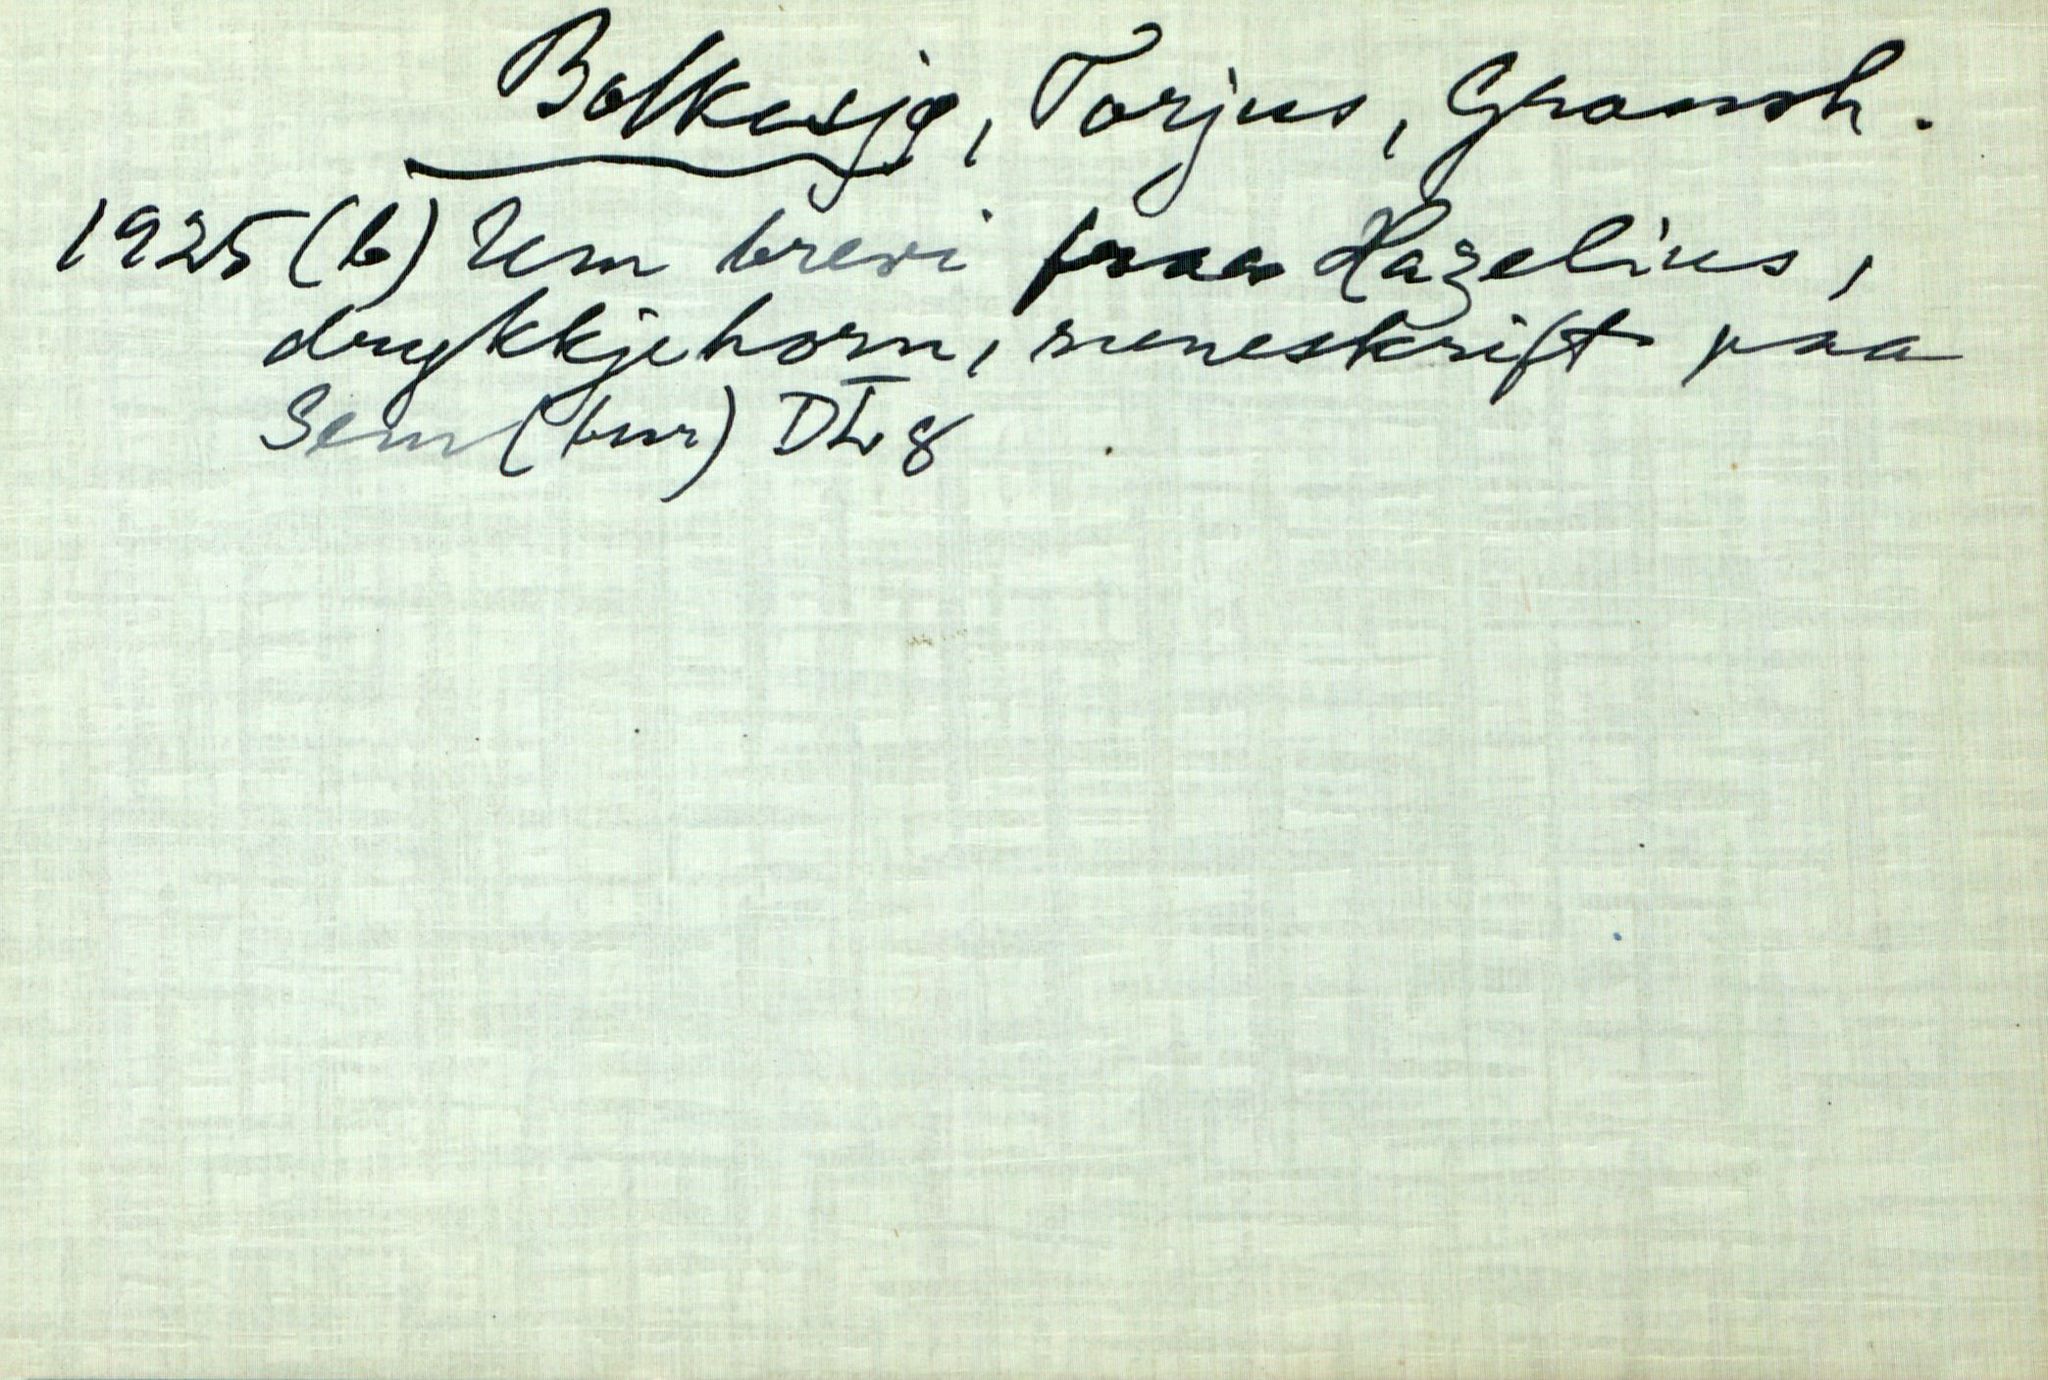 Bolkesjø, Torjus, Gransh.
1925 (b) Um brevi fraa Hazelius,
drykkjehorn, runeskrift paa
Sem (bur)